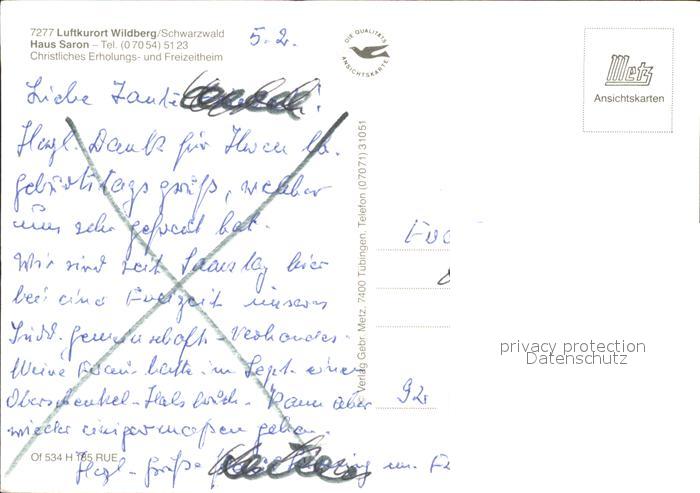 7277 Luftkurort Wildberg/Schwarzwald
Haus Saron – Tel. (07054) 5123
Christliches Erholungs- und Freizeitheim
5. 2.
DIE QUALITÄTS
ANSICHTSKARTE
Metz
Ansichtskarten
Liebe Tante
Herzl. Dank für Ihren lb.
Geburtstagsgruß, welcher
uns sehr gefreut hat.
Wir sind seit Samstag hier
bei einer Freizeit unseres
Südd. Gemeinschaft-Verbandes.
Meine Frau hatte im Sept. einen
Oberschenkel-Halsbruch. Kann aber
wieder einigermaßen gehen.
Herzl. Grüße
Verlag Gebr. Metz, 7400 Tübingen, Telefon (07071) 31051
92
Of 534 H 185 RUE
privacy protection
Datenschutz